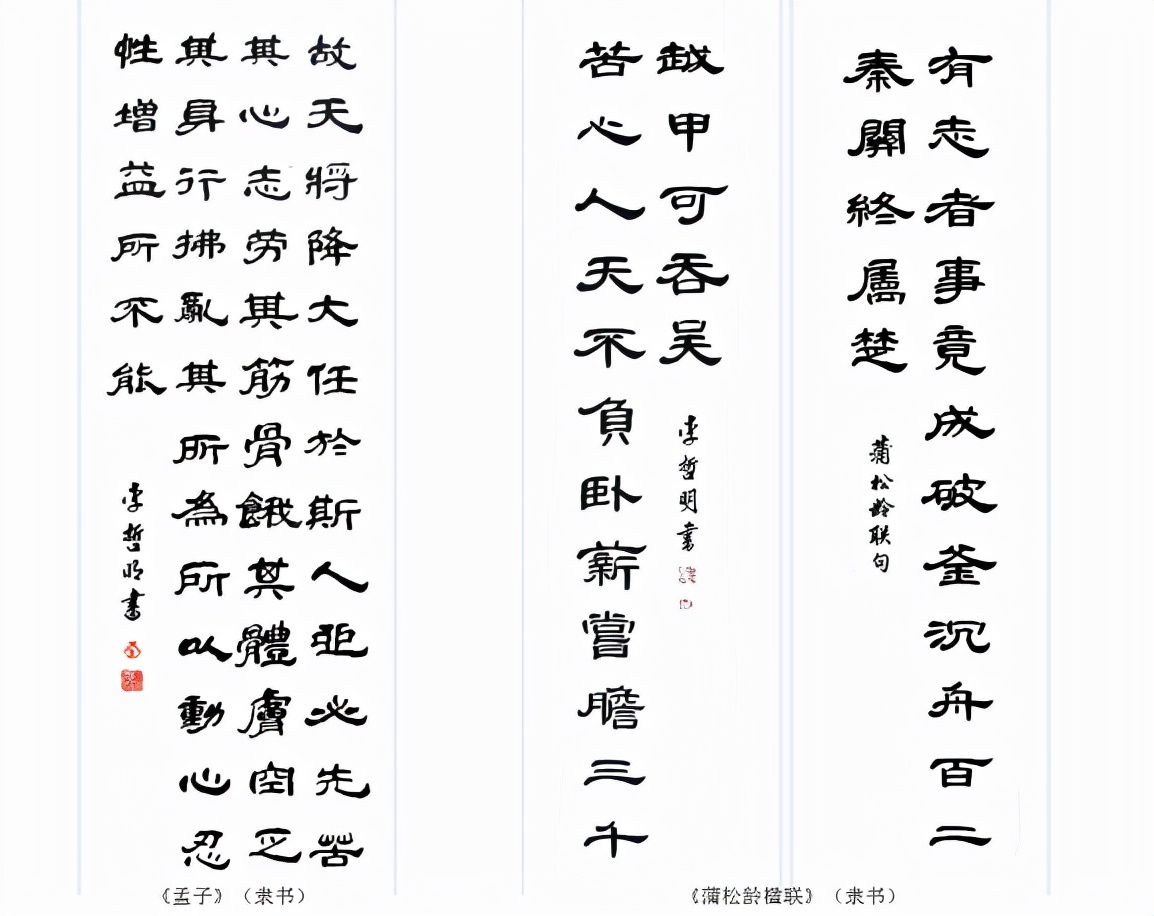 有志者事竟成破釜沉舟百二
秦關終属楚
蒲松龄联句
苦心人天不負卧薪嘗膽三千
越甲可吞吴
李哲明書
《蒲松龄楹联》（隶书）
故天將降大任於斯人也必先苦
其心志劳其筋骨餓其體膚空乏
其身行拂亂其所為所以動心忍
性增益所不能
李哲明書
《孟子》（隶书）